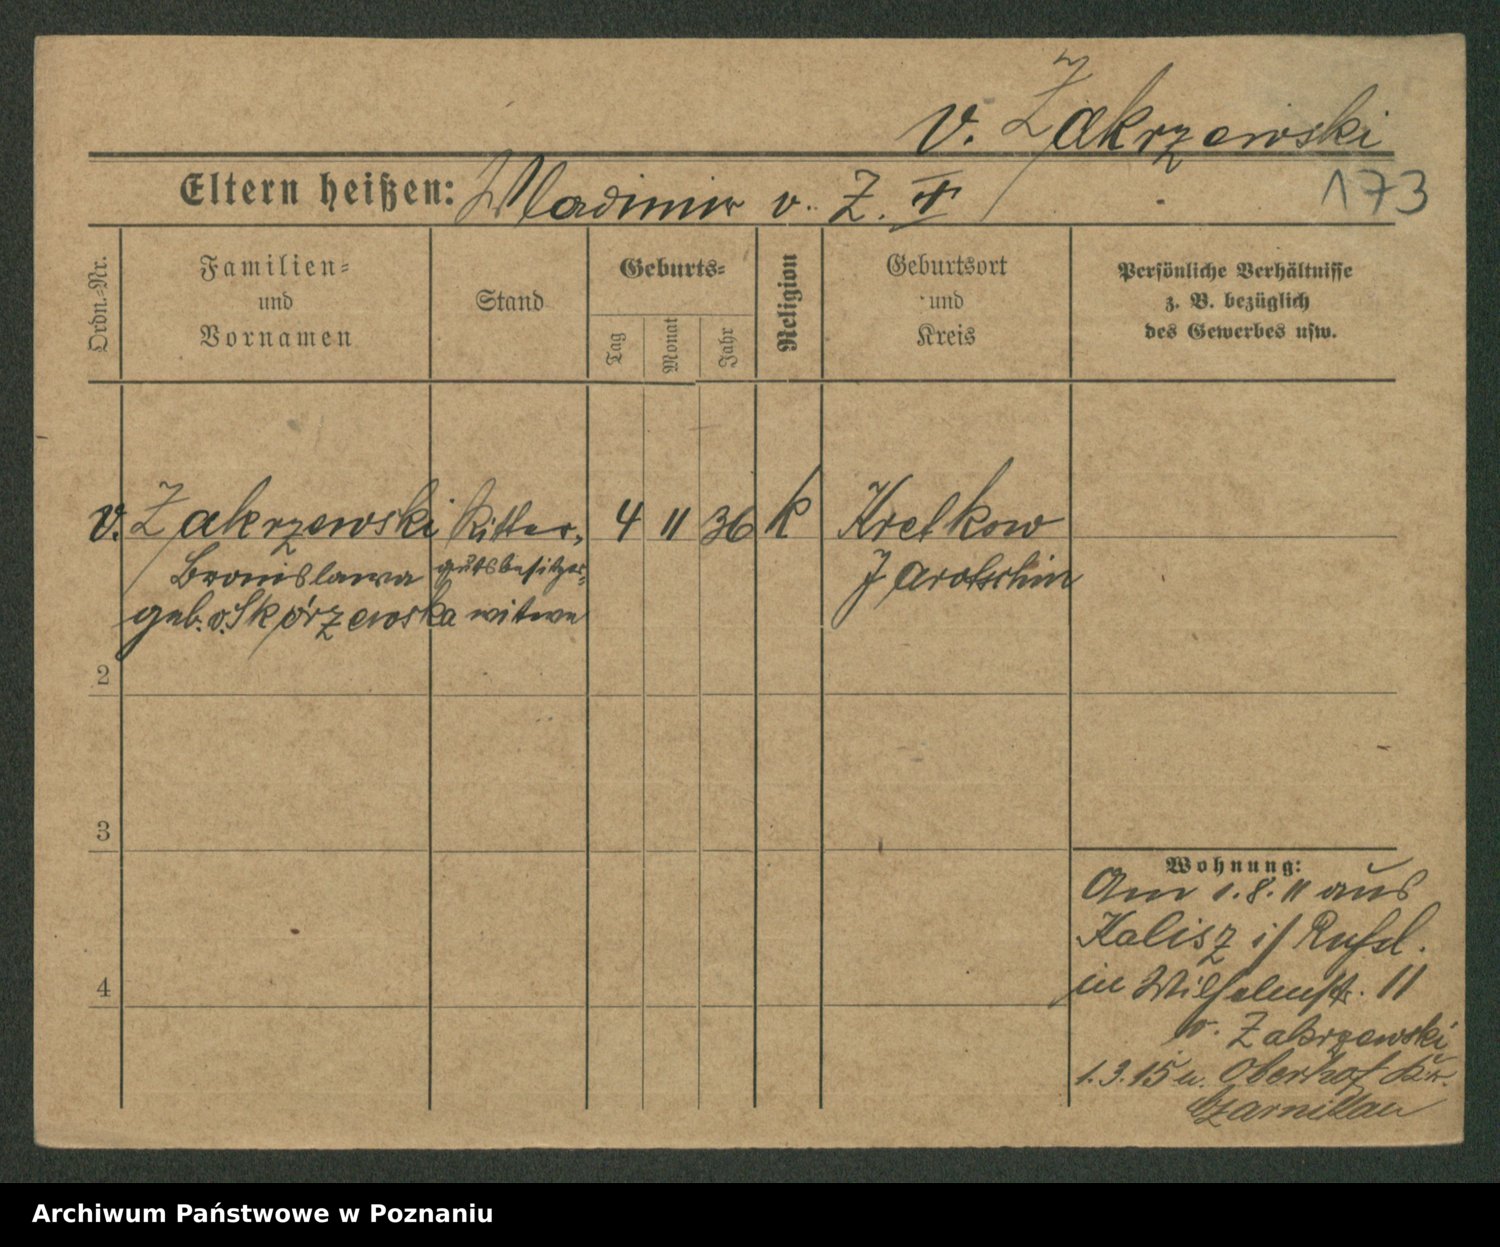 v. Zakrzewski
Eltern heißen: Wladimir v. Z. †
173
Ordn.-Nr.
Familien-
und
Vornamen
Stand
Geburts-
Tag
Monat
Jahr
Religion
Geburtsort
und
Kreis
Persönliche Verhältnisse
z. B. bezüglich
des Gewerbes usw.
v. Zakrzewski Ritter- 4 11 36 k Kretkow
Bronislawa gutsbesitzer- Jarotschin
geb. v. Skórzewska witwe
2
3
4
Wohnung:
Am 1.8.11 aus
Kalisz i/ Rußl.
in Wilhelmstr. 11
v. Zakrzewski
1.3.15 n. Oberhof Kr.
Czarnikau
Archiwum Państwowe w Poznaniu